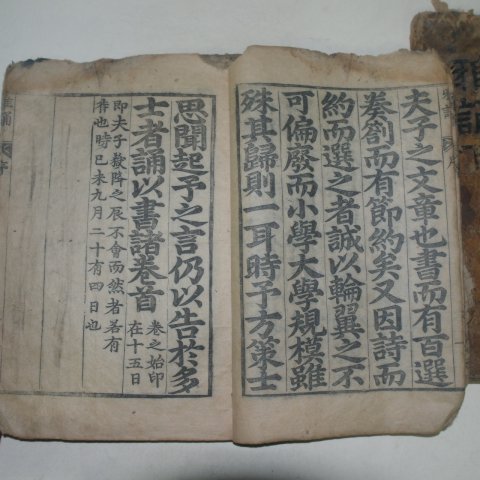 夫子之文章也書而有百選
奏劄而有節約矣又因詩而
約而選之者誠以輪翼之不
可偏廢而小學大學規模雖
殊其歸則一耳時予方策士
思聞起予之言仍以告於多
士者誦以書諸卷首
卷之始印
在十五日
即夫子數阵之辰不會而然者若有
待也時己未九月二十有四日也